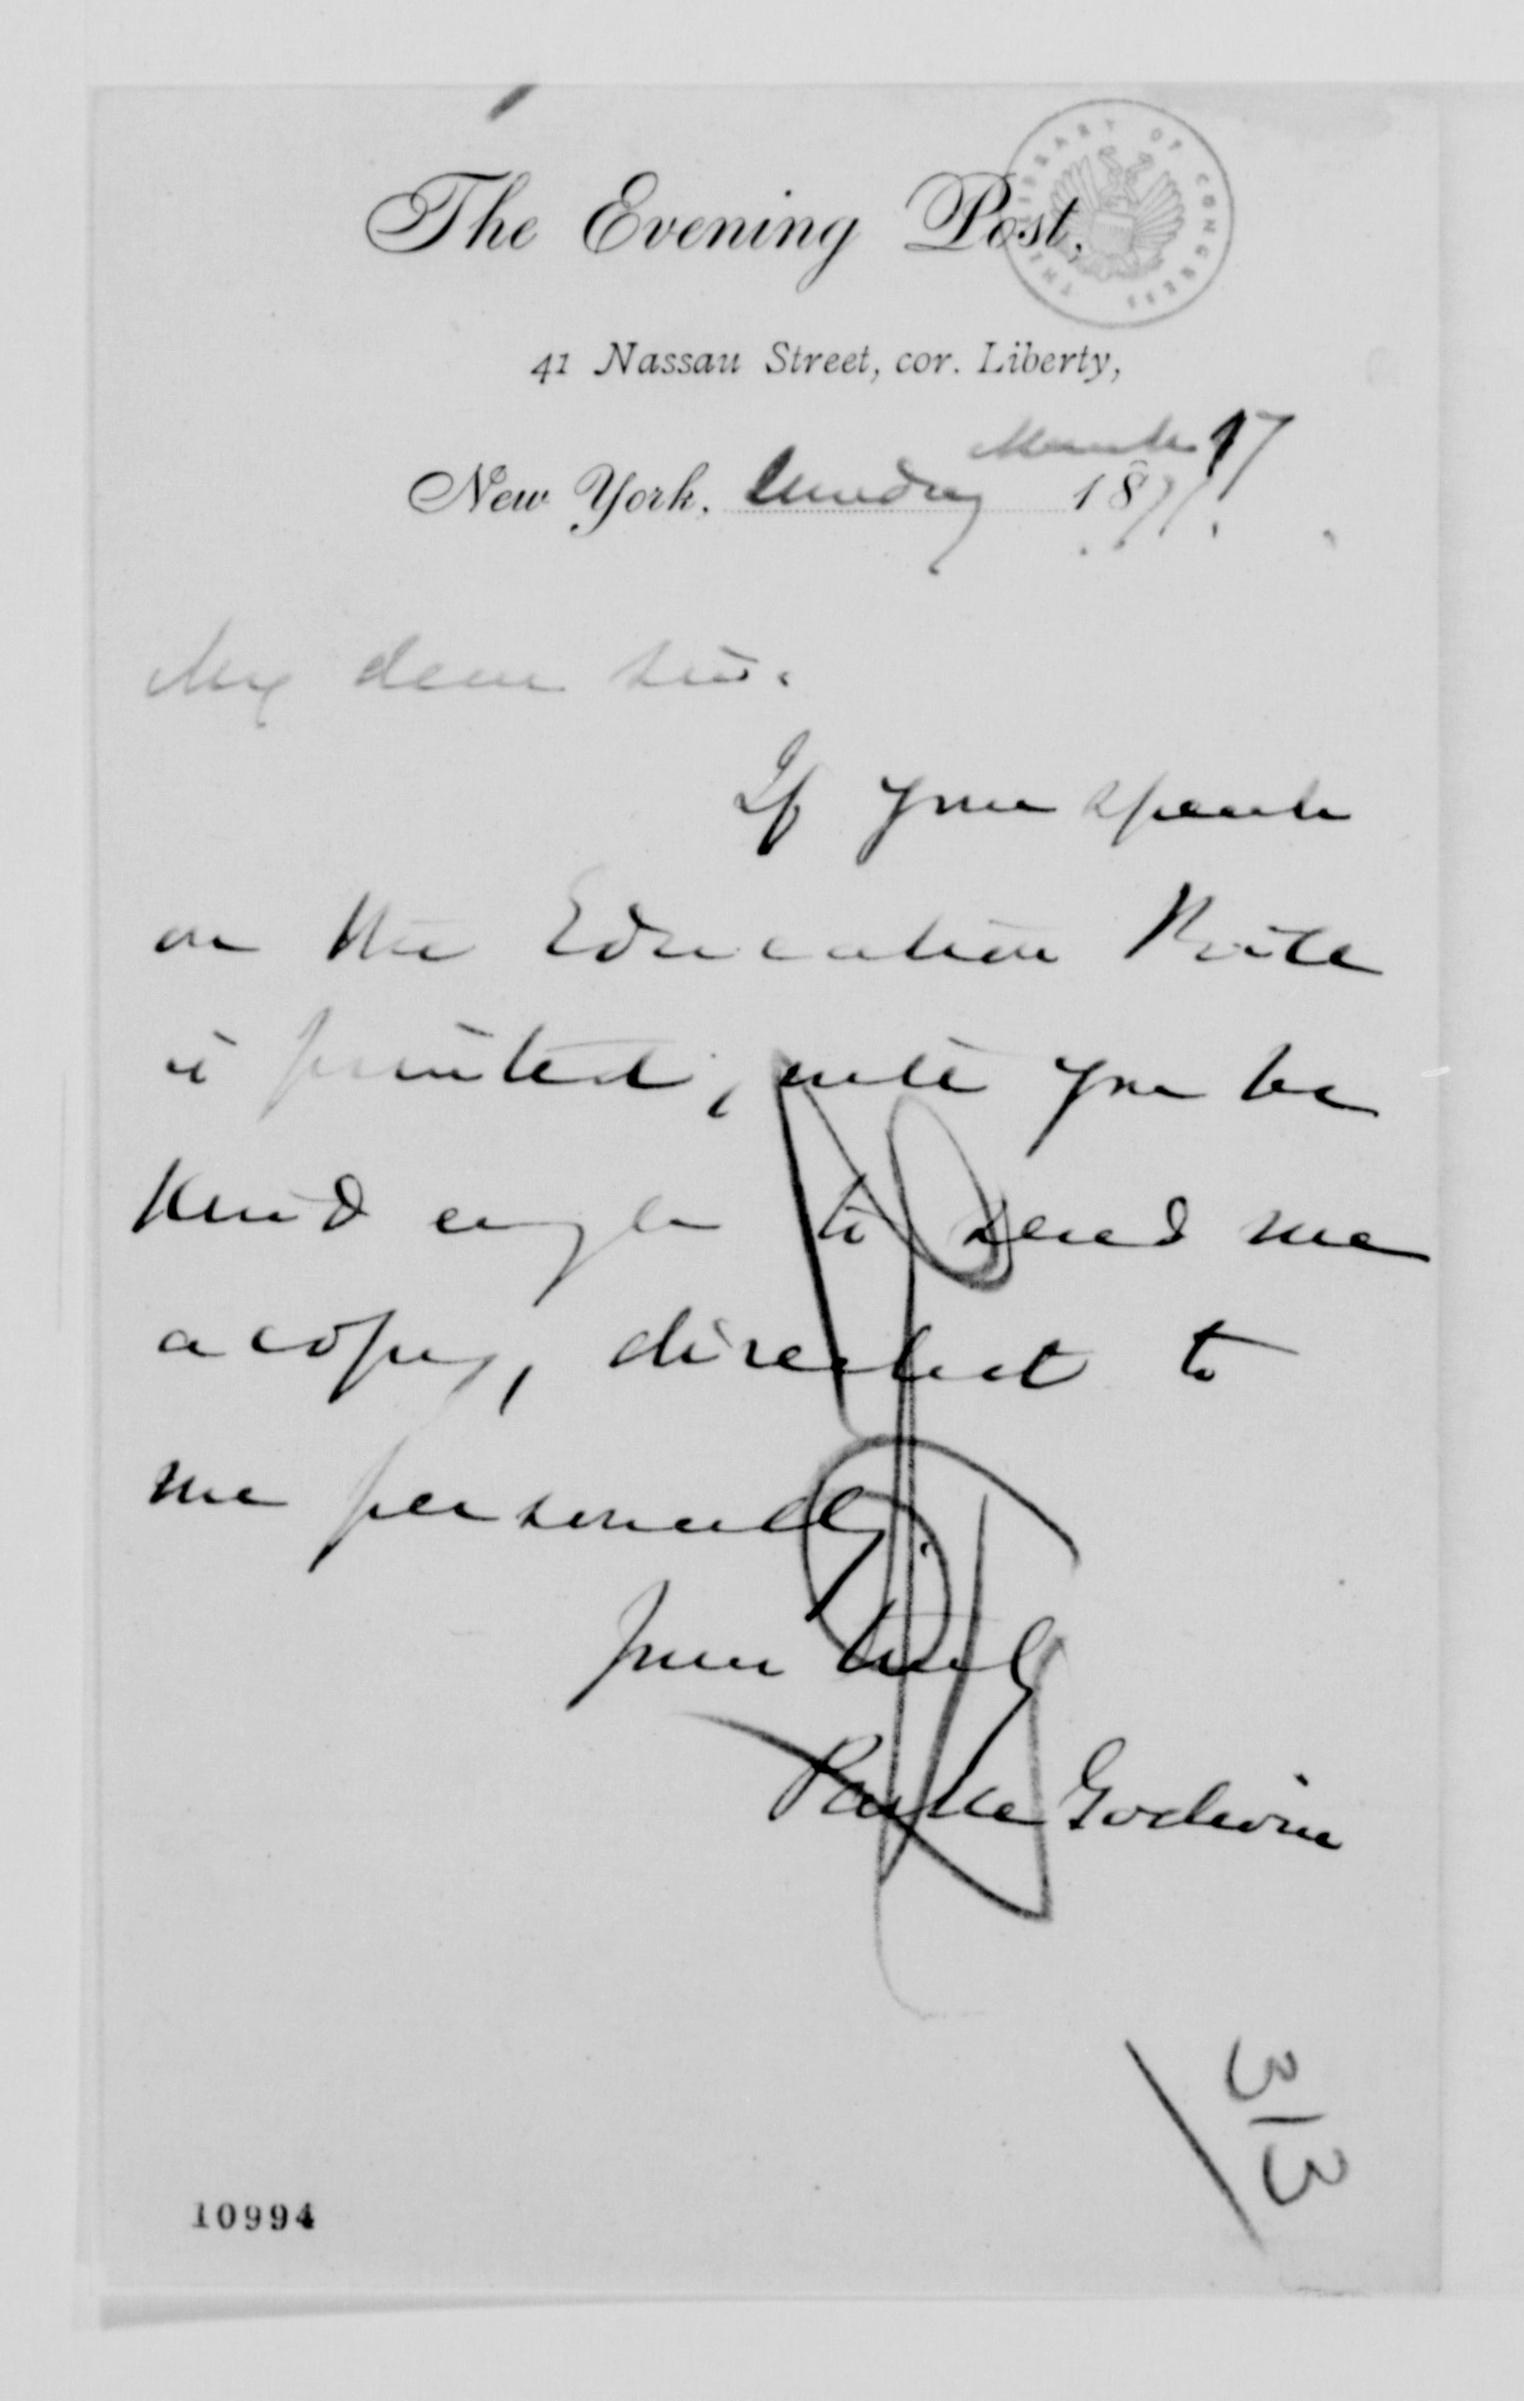 THE LIBRARY OF CONGRESS
The Evening Post,
41 Nassau Street, cor. Liberty,
March 17
New York, Sunday 187
My dear sir.
If your speech
on the Education Bill
is printed, will you be
kind enough to send me
a copy, direct to
me personally.
Yours truly
Parke Godwin
313
10994